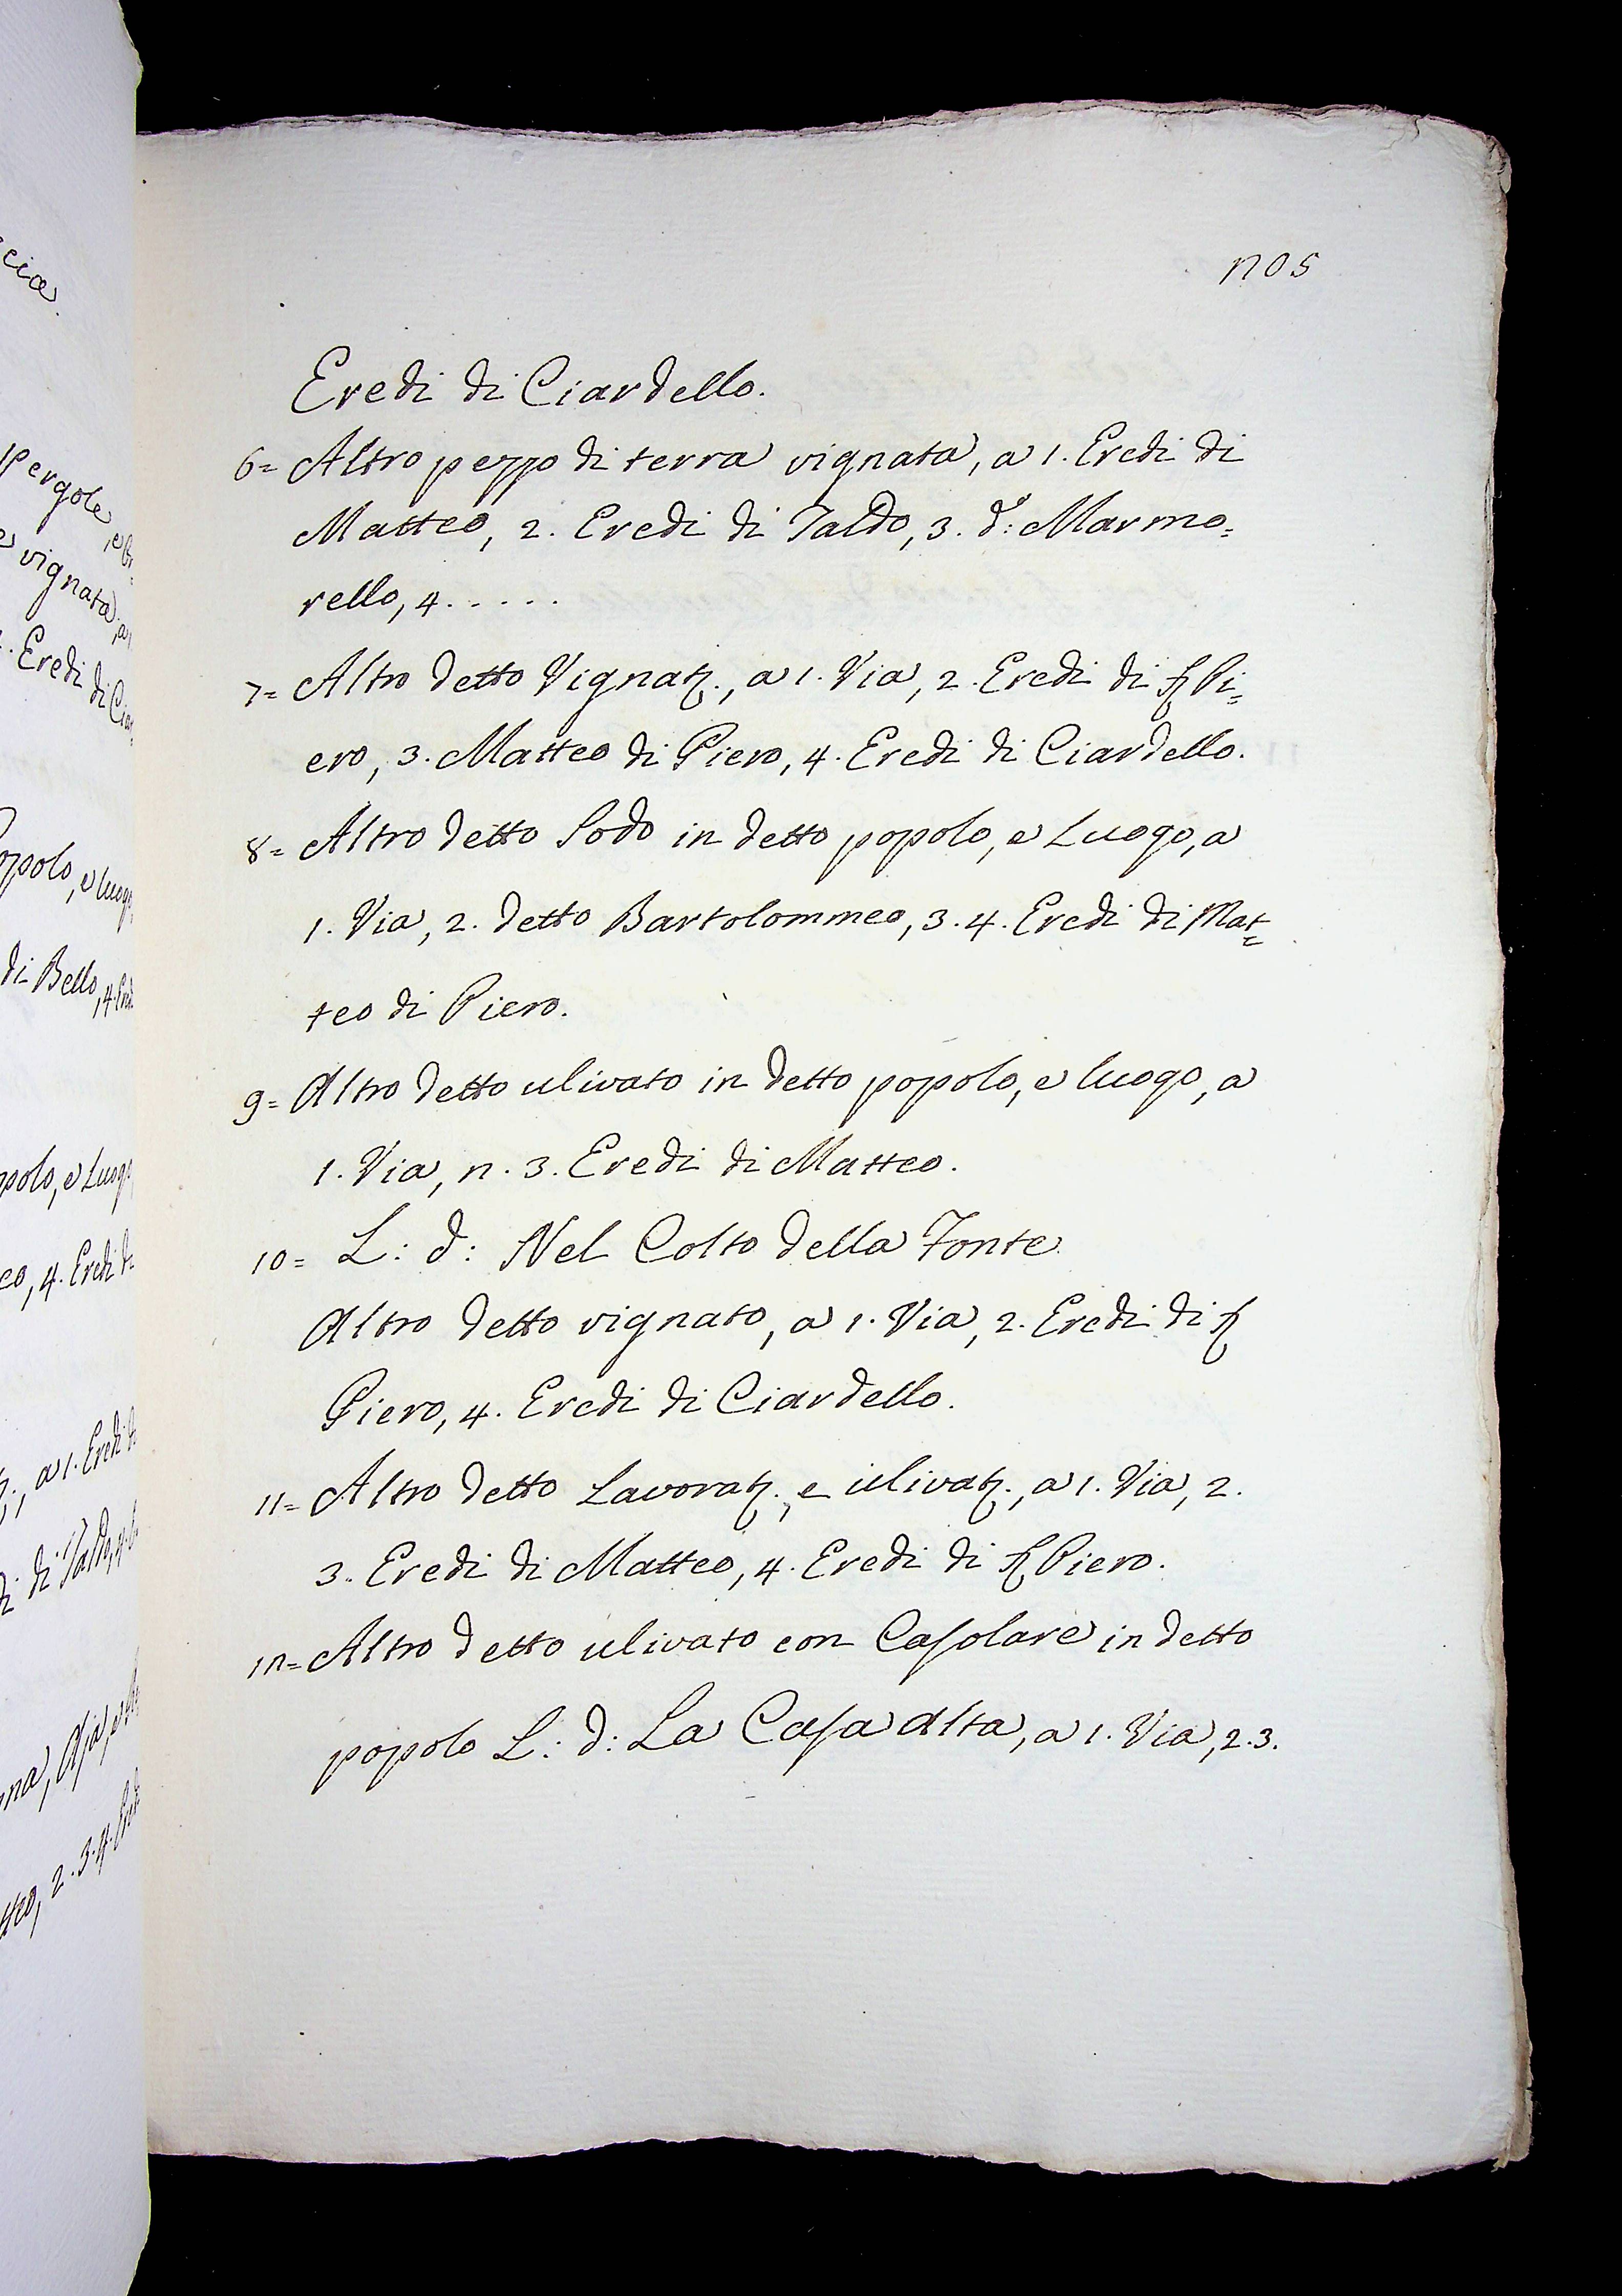 205
Eredi di Ciardello.
6= Altro pezzo di terra vignata, a 1. Eredi di
Matteo, 2. Eredi di Taldo, 3. d.º: Marmo=
rello, 4.....
7= Altro detto Vignatº., a 1. Via, 2. Eredi di Sr Pi=
ero, 3. Matteo di Piero, 4. Eredi di Ciardello.
8= Altro detto Sodo in detto popolo, e Luogo, a
1. Via, 2. detto Bartolommeo, 3. 4. Eredi di Mat=
teo di Piero.
9= Altro detto ulivato in detto popolo, e luogo, a
1. Via, 2. 3. Eredi di Matteo.
10= L: d: Nel Colto della Fonte
Altro detto vignato, a 1. Via, 2. Eredi di Sr
Piero, 4. Eredi di Ciardello.
11= Altro detto Lavoratº., e ulivatº., a 1. Via, 2.
3. Eredi di Matteo, 4. Eredi di Sr Piero.
12= Altro detto ulivato con Casolare in detto
popolo L: d: La Casa alta, a 1. Via, 2. 3.
Pergole
vignata
Eredi di
popolo, e luogo
di Bello, 4.
e Luogo
4. Eredi
a 1. Eredi
di Taldo
2. 3. 4.